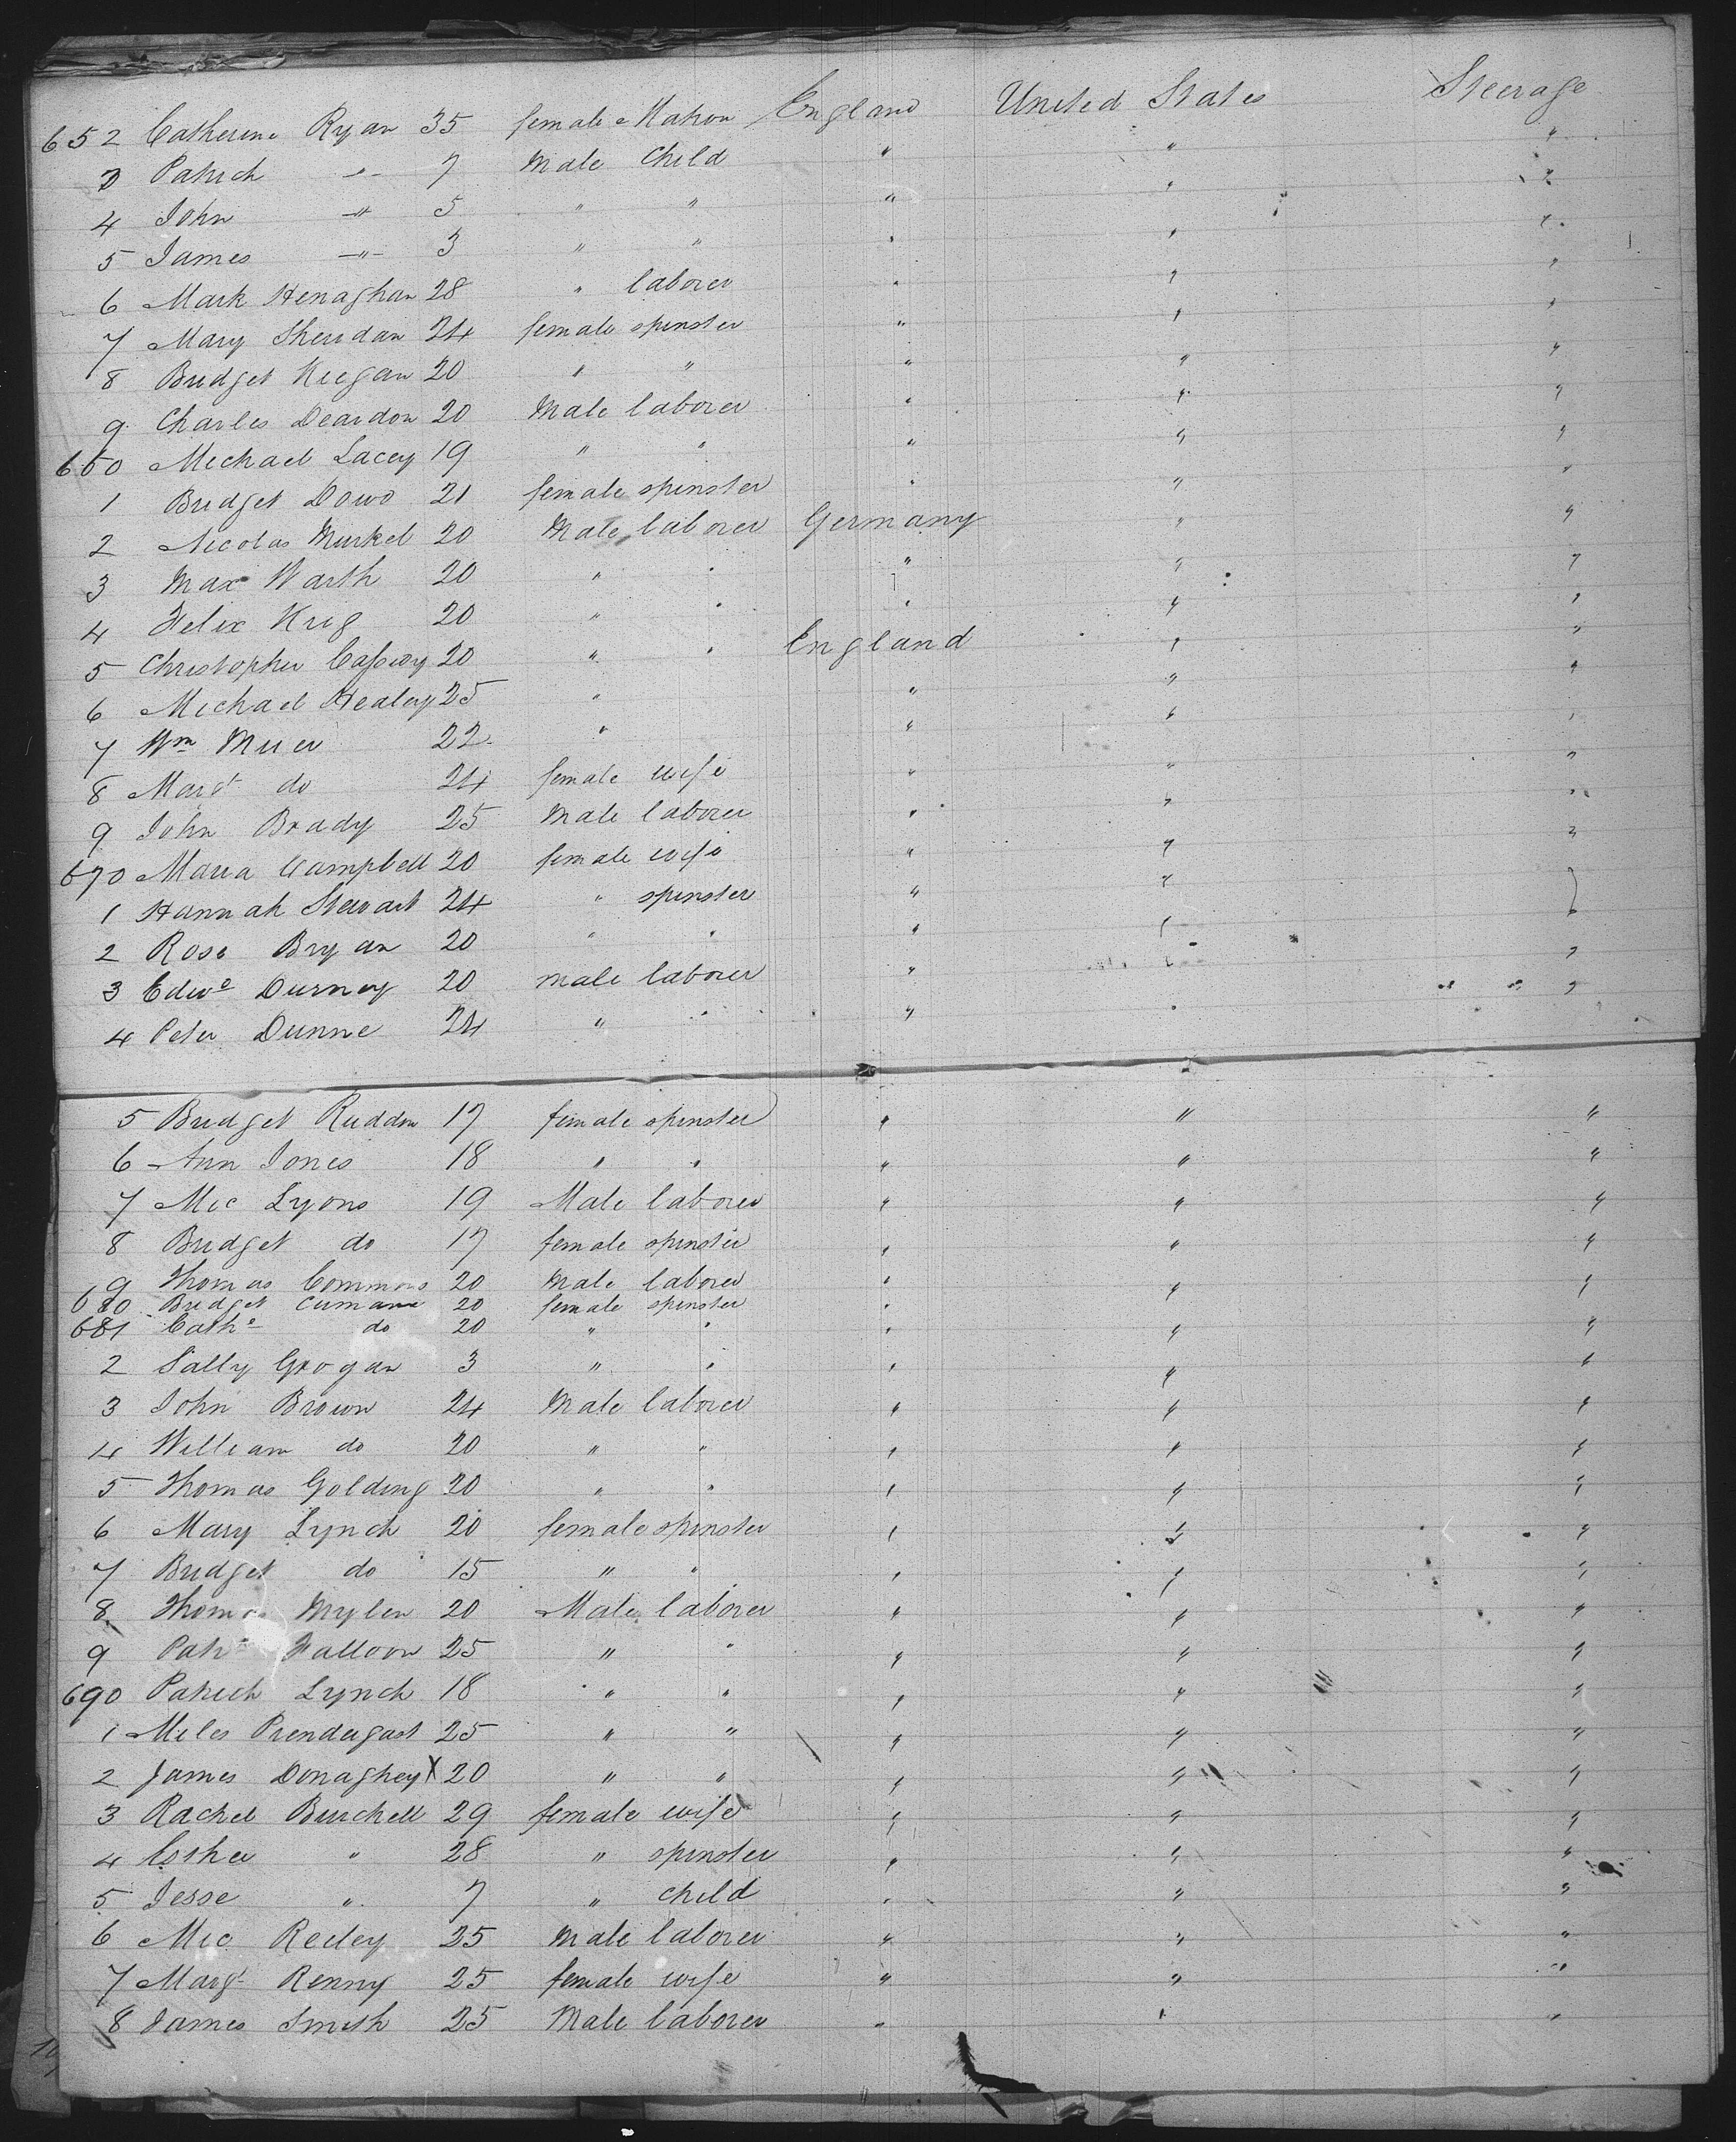 652 Catherine Ryan 35 female Matron England United States Steerage
3 Patrick -"- 7 Male Child " " "
4 John -"- 5 " " " " "
5 James -"- 3 " " " " "
6 Mark Henaghan 28 " laborer " " "
7 Mary Sheridan 24 female spinster " " "
8 Bridget Keegan 20 " " " " "
9 Charles Deardon 20 Male laborer " " "
660 Michael Lacey 19 " " " " "
1 Bridget Dowd 21 female spinster " " "
2 Nicolas Murkel 20 Male laborer Germany " "
3 Max Warth 20 " " " " "
4 Felix Krig 20 " " " " "
5 Christopher Cassidy 20 " " England " "
6 Michael Healey 25 " " " "
7 Wm Muer 22 " " " "
8 Margt do 24 female wife " " "
9 John Brady 25 Male laborer " " "
670 Maria Campbell 20 female wife " " "
1 Hannah Stewart 24 " spinster " "
2 Rose Bryan 20 " " " " "
3 Edwd Durney 20 male laborer " " "
4 Peter Dunne 24 " " " " "
5 Bridget Ruddin 17 female spinster " " "
6 Ann Jones 18 " " " " "
7 Mic Lyons 19 Male laborer " " "
8 Bridget do 17 female spinster " " "
9 Thomas Commons 20 Male laborer " " "
680 Bridget 20 female spinster "
681 Cathe do 20 " " " " "
2 Sally Grogan 3 " " " " "
3 John Brown 24 Male laborer " " "
4 William do 20 " " " " "
5 Thomas Golding 20 " " " " "
6 Mary Lynch 20 female spinster " " "
7 Bridget do 15 " " " " "
8 Thomas Mylen 20 Male laborer " " "
9 Patk Falloon 25 " " " " "
690 Patrick Lynch 18 " " " " "
1 Miles Prendergast 25 " " " " "
2 James Donaghey X 20 " " " " "
3 Rachel Burchell 29 female wife " " "
4 Esther " 28 " spinster " " "
5 Jesse " 7 " child " " "
6 Mic Reiley 25 Male laborer " " "
7 Margt Renny 25 female wife " " "
8 James Smith 25 Male laborer " " "